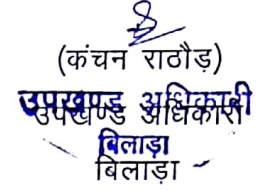 (कंचन राठौड़)
उपखण्ड अधिकारी
उपखण्ड अधिकारी
बिलाड़ा
बिलाड़ा